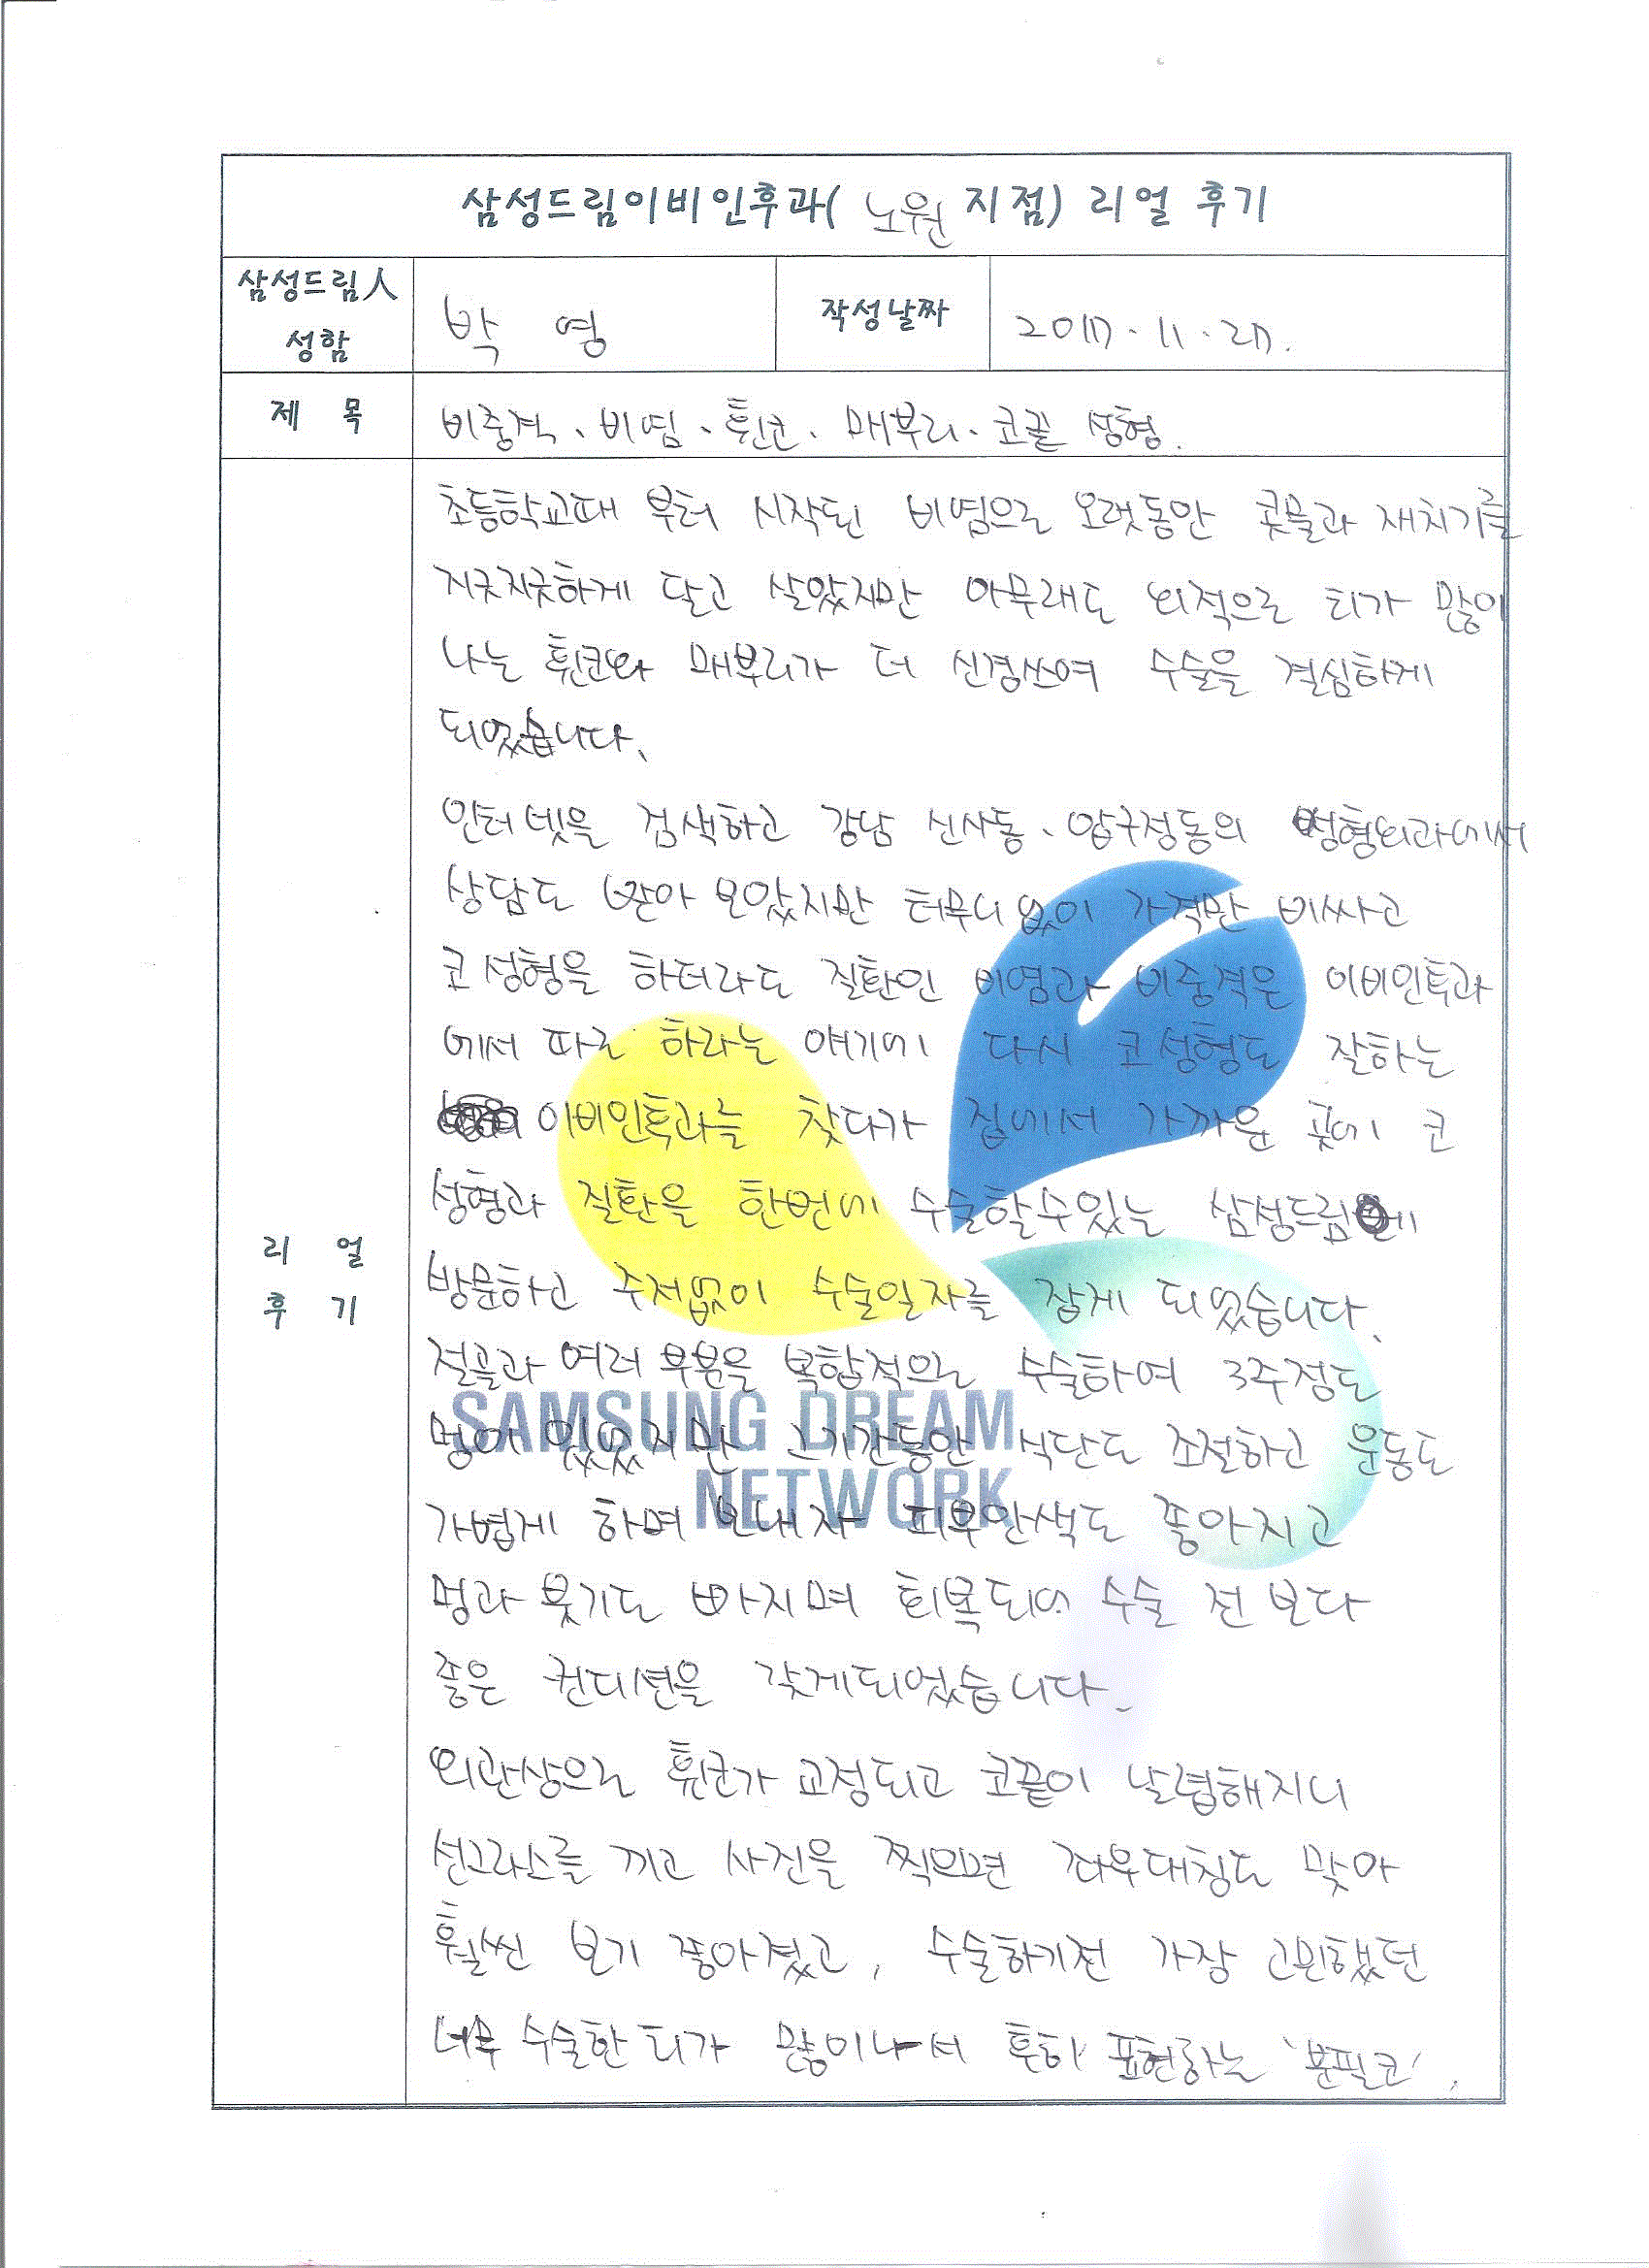 삼성드림이비인후과( 노원 지점) 리얼 후기
삼성드림人
성함
박 영
작성날짜
2017. 11. 27.
제 목
비중격、비염、휜코、매부리、코끝 성형.
리 얼
후 기
초등학교때 부터 시작된 비염으로 오랫동안 콧물과 재치기를
지긋지긋하게 달고 살았지만 아무래도 외적으로 티가 많이
나는 휜코와 매부리가 더 신경쓰여 수술을 결심하게
되었습니다.
인터넷을 검색하고 강남 신사동、압구정동의 성형외과에서
상담도 받아 보았지만 터무니 없이 가격만 비싸고
코 성형을 하더라도 질환인 비염과 비중격은 이비인후과
에서 따로 하라는 얘기에 다시 코 성형도 잘하는
이비인후과를 찾다가 집에서 가까운 곳에 코
성형과 질환을 한번에 수술할수있는 삼성드림에
방문하고 주저없이 수술일자를 잡게 되었습니다.
절골과 여러 부분을 복합적으로 수술하여 3주정도
멍이 있었지만 그기간동안 식단도 조절하고 운동도
가볍게 하며 보내자 피부안색도 좋아지고
멍과 붓기도 빠지며 회복되어 수술 전 보다
좋은 컨디션을 갖게되었습니다.
외관상으로 휜코가 교정되고 코끝이 날렵해지니
선그라스를 끼고 사진을 찍으면 좌우대칭도 맞아
훨씬 보기 좋아졌고, 수술하기전 가장 고민했던
너무 수술한 티가 많이나서 흔히 표현하는 '분필코',
SAMSUNG DREAM
NETWORK